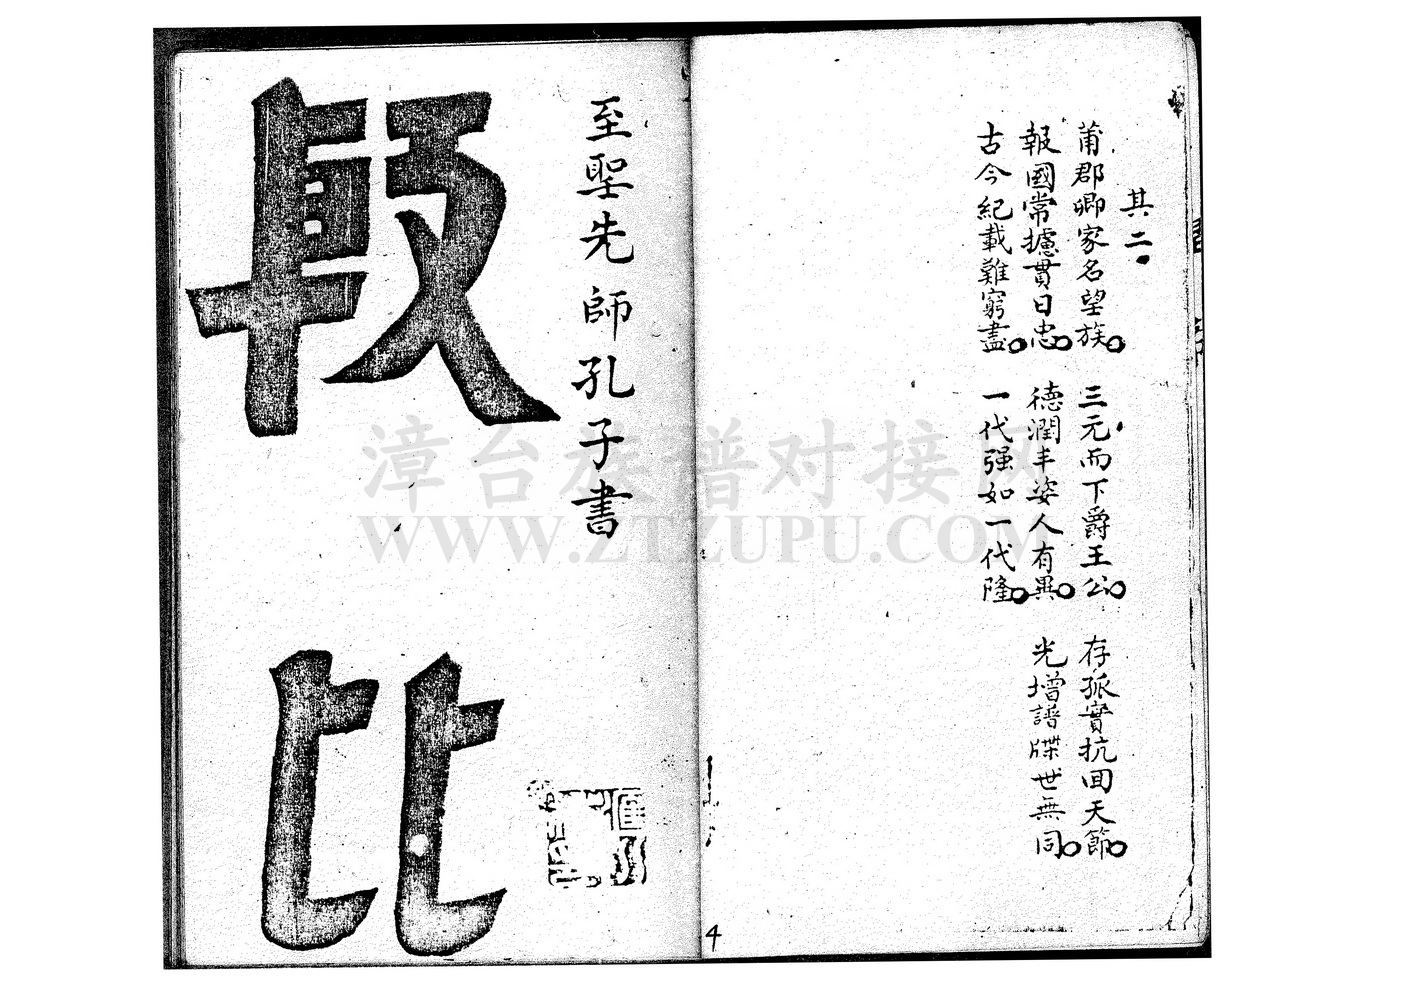 其二
莆郡卿家名望族 三元而下爵王公 存孤實抗回天節
報國常攄貫日忠 德潤丰姿人有異 光增譜牒世無同
古今紀載難窮盡 一代强如一代隆
4
至聖先師孔子書
殷比
漳台族谱对接网
WWW.ZTZUPU.COM